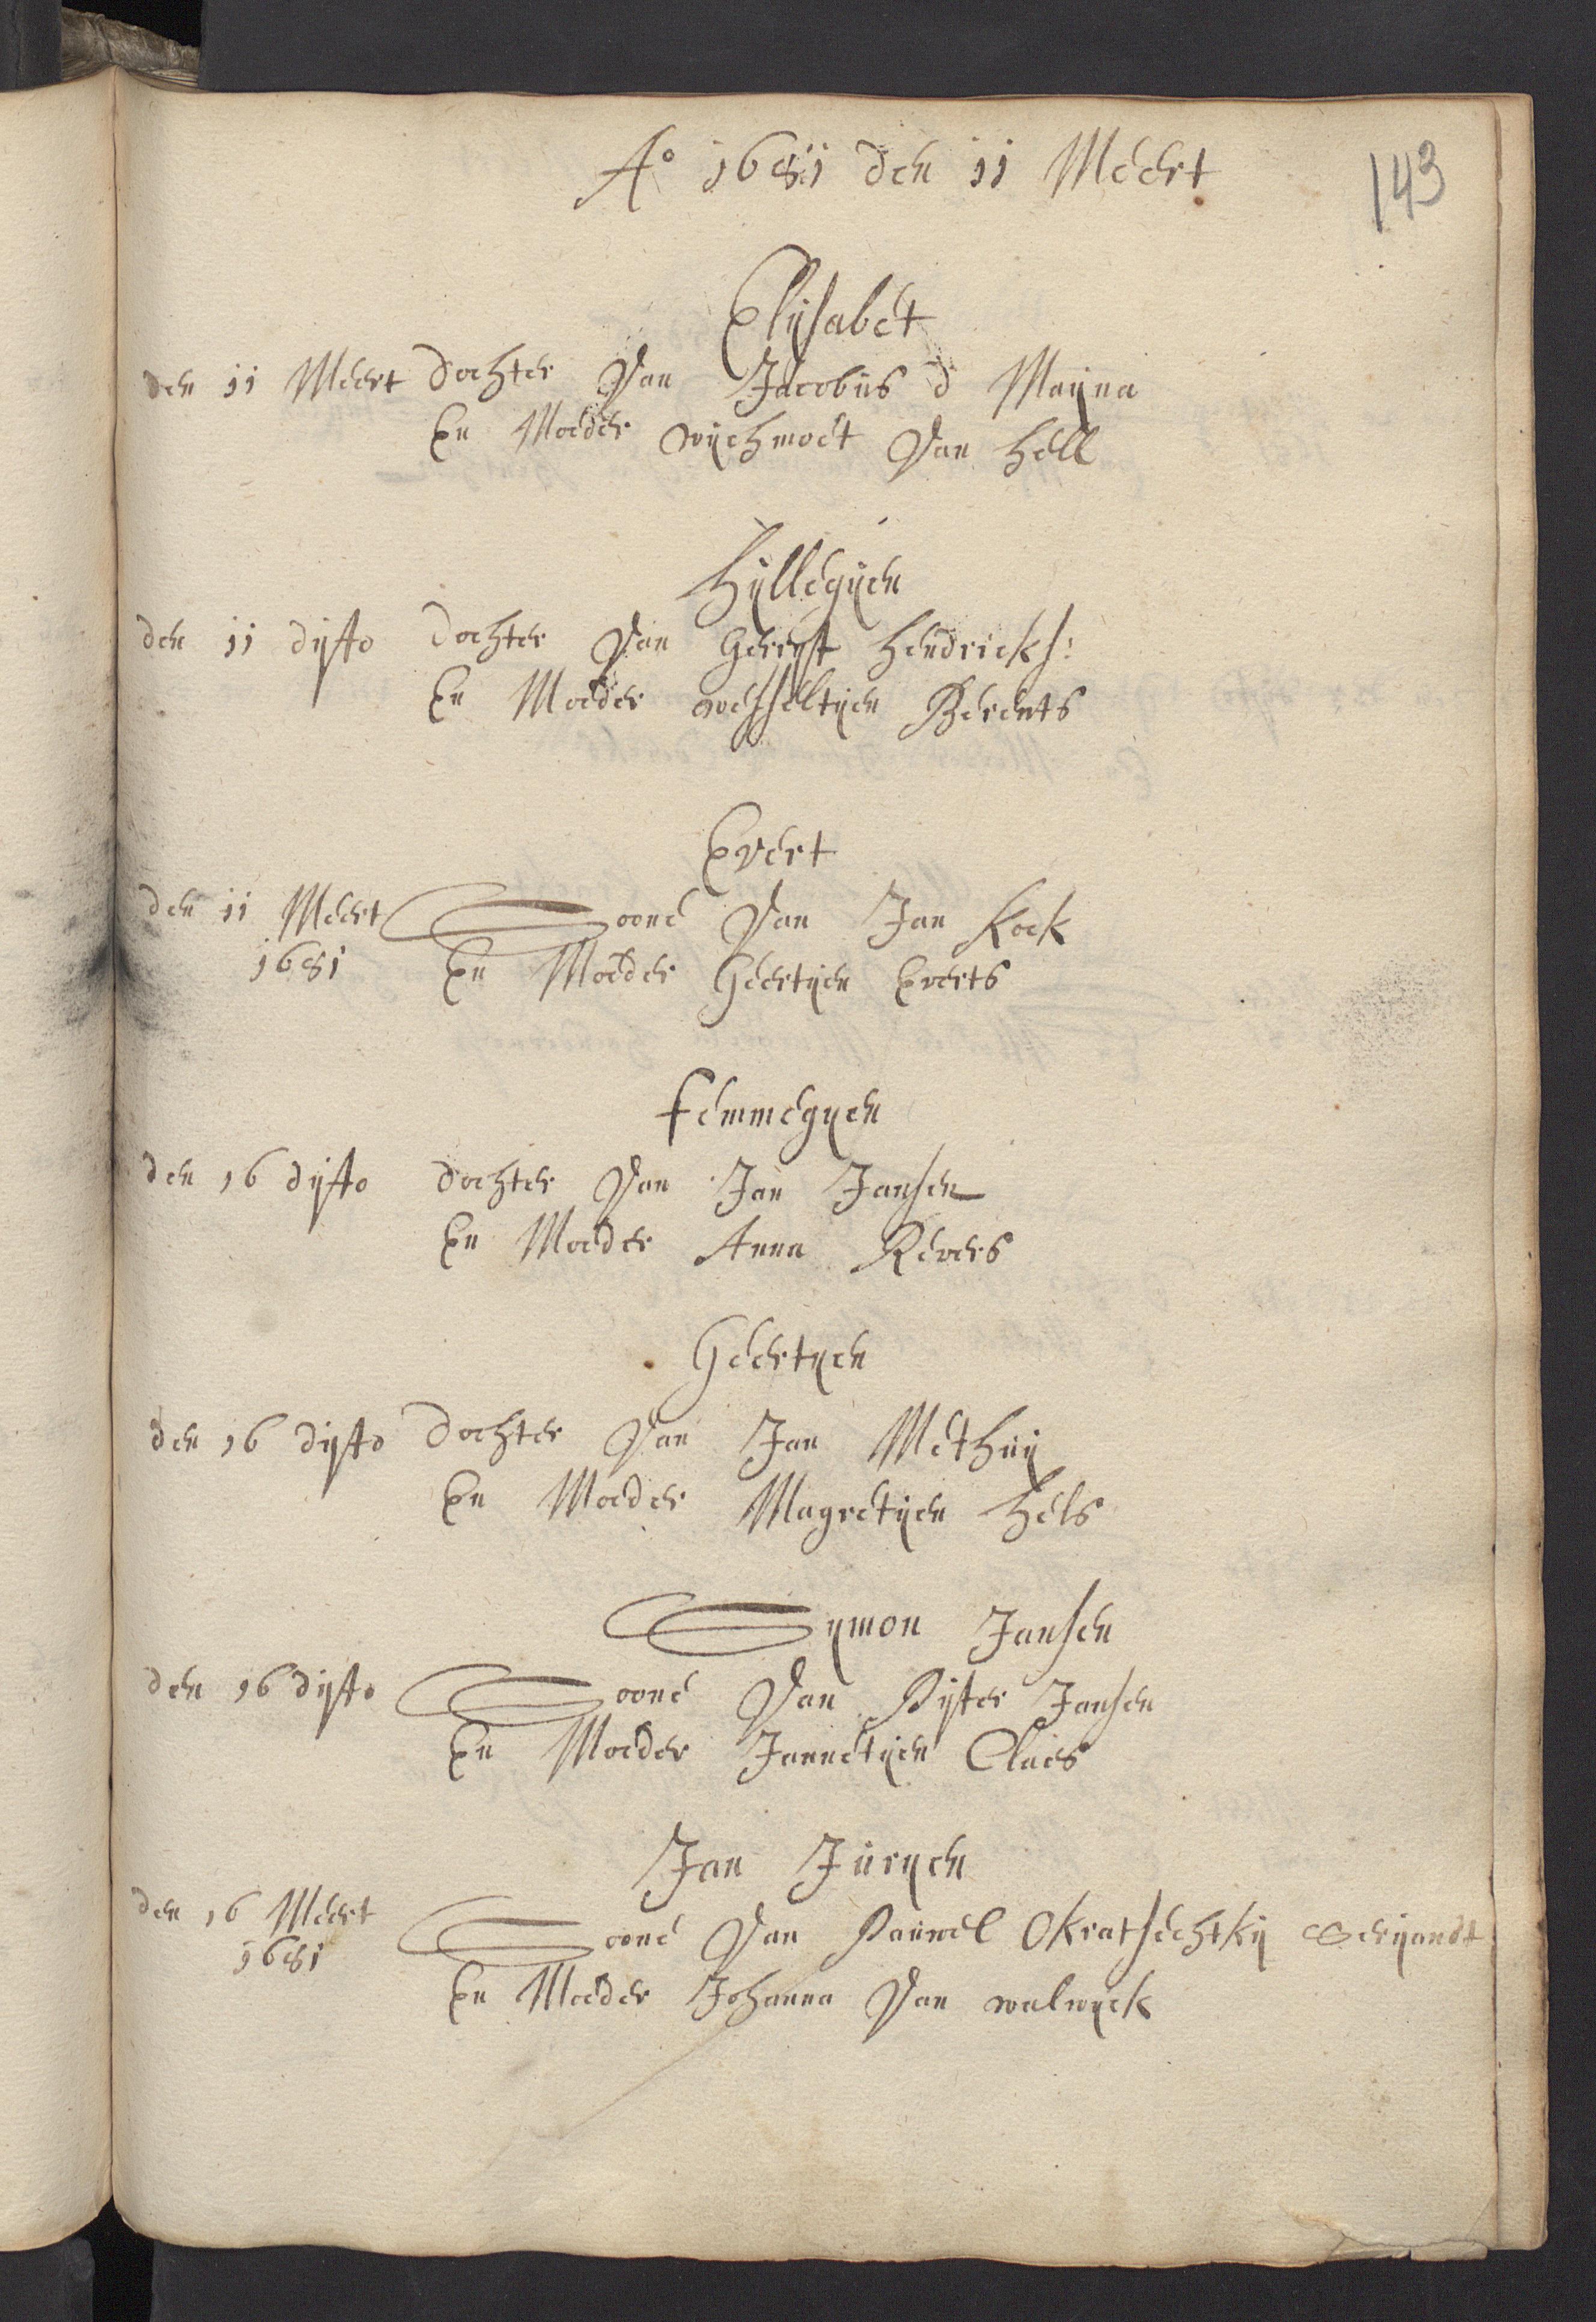 Aº 1681 den 11 Meert
143
Elijsabet
den 11 Meert dochter Van Jacobus d Maijna
En Moeder wijchmoet Van Hell
Hijllegijen
den 11 dijtto dochter Van Gerrijt Hendricks:
En Moeder wesseltijen Berents
Evert
den 11 Meert Soone Van Jan Kock
1681 En Moeder Geertijen Everts
Femmegijen
den 16 dijtto dochter Van Jan Jansen
En Moeder Anna Revers
Geertijen
den 16 dijtto dochter Van Jan Methuij
En Moeder Magretijen Hels
Sijmon Jansen
den 16 dijtto Soone Van Pijter Jansen
En Moeder Jannetijen Claes
Jan Jurijen
den 16 Meert Soone Van Pauwel Okratsechtkij Serijandt
1681 En Moeder Johanna Van walwijck